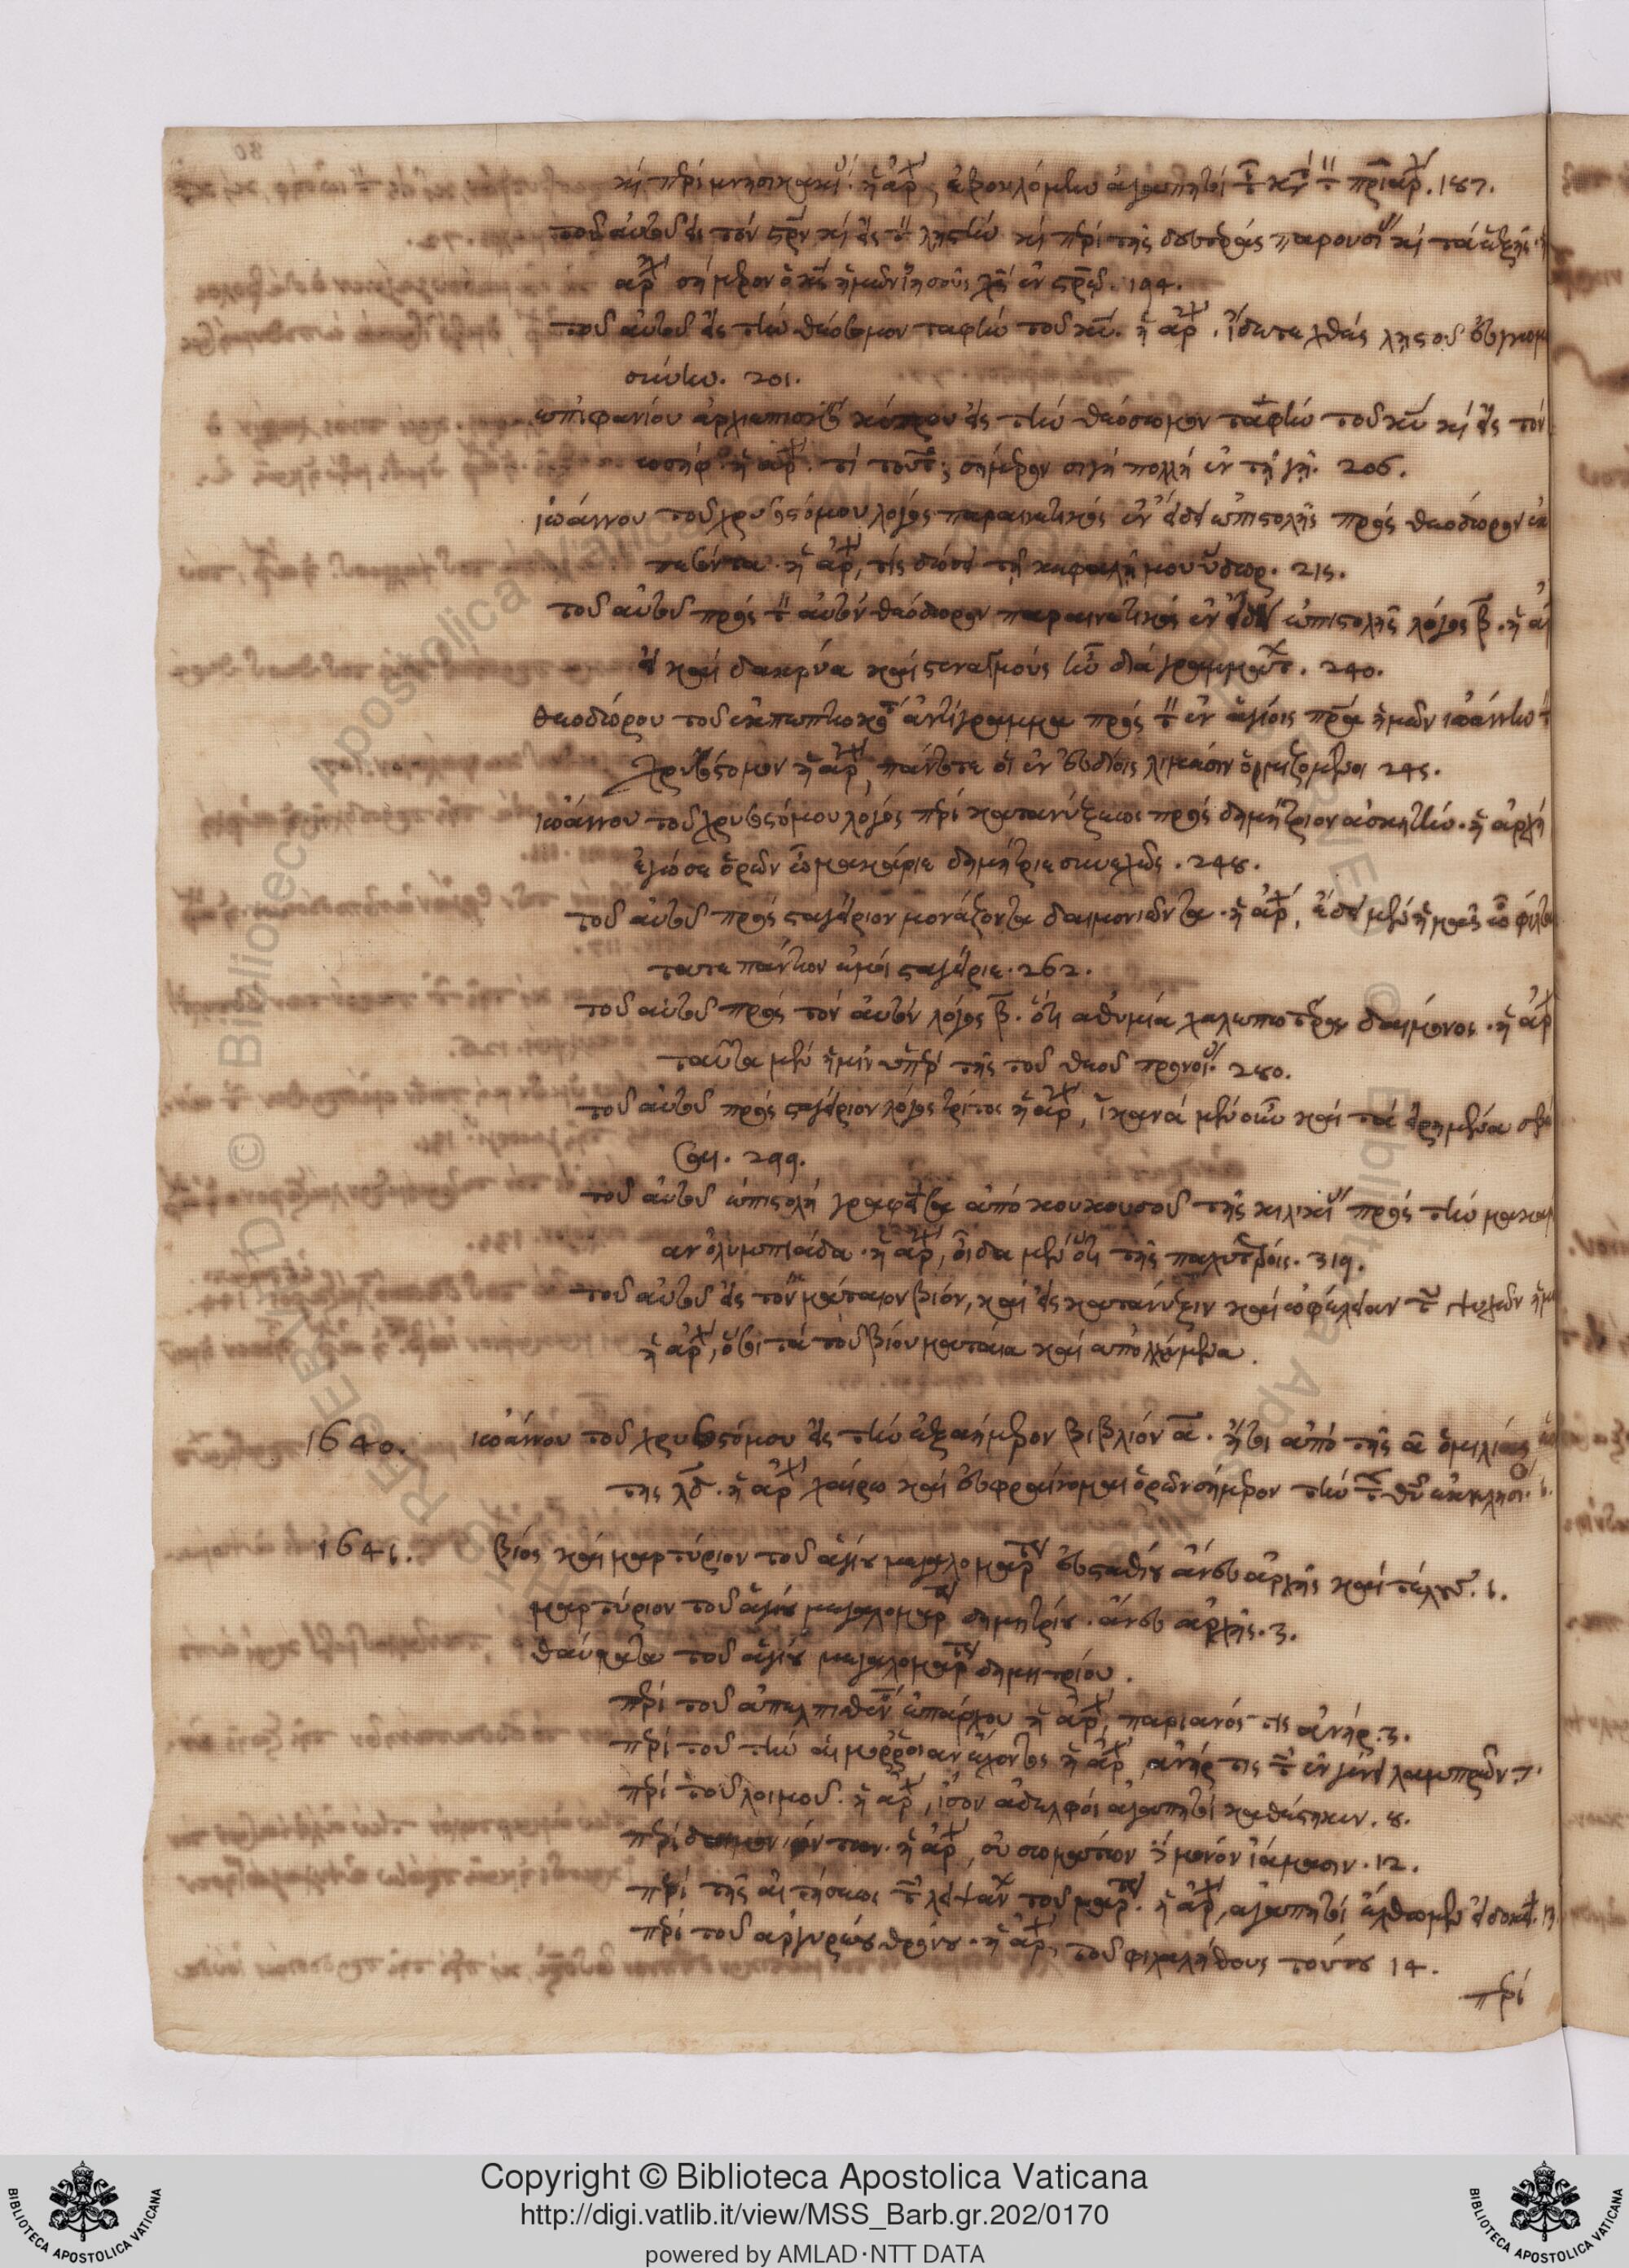 κ(αὶ) περὶ μνησικακί(ας). ἡ ἀρχ(ὴ), ἐβουλόμην ἀγαπητοὶ 187.
τοῦ αὐτοῦ εἰς τὸν στ(αυ)ρὸν κ(αὶ) εἰς τ(ὸν) ληστὴν κ(αὶ) περὶ τῆς δευτέρας παρουσί(ας) κ(αὶ) τὰ ἑξῆς. ἡ
ἀρχ(ὴ) σήμερον ὁ κ(ύριο)ς ἡμῶν ἰησοῦς χ(ριστὸ)ς ἐν στ(αυ)ρῷ. 194.
τοῦ αὐτοῦ εἰς τὴν θεόσωμον ταφὴν τοῦ κ(υρίο)υ. ἡ ἀρχ(ὴ). εἴδωτε χθὲς ληστοῦ εὐγνωμο
σύνην. 201.
ἐπιφανίου ἀρχιεπισκ(όπου) κύπρου εἰς τὴν θεόσωμον ταφὴν τοῦ κ(υρίο)υ κ(αὶ) εἰς τὸν
ιωσήφ. ἡ ἀρχ(ή). τί τοῦτο; σήμερον σιγὴ πολλὴ ἐν τῇ γῇ. 206.
ἰωάννου τοῦ χρυσοστόμου λόγος παραινετικὸς ἐν εἴδει ἐπιστολῆς πρὸς θεόδωρον ἐκ
πεσόντα. ἡ ἀρχ(ὴ), τίς δώσει τῇ κεφαλῇ μου ὕδωρ. 215.
τοῦ αὐτοῦ πρὸς τ(ὸν) αὐτὸν θεόδωρον παραινετικὸς ἐν εἴδει ἐπιστολῆς λόγος β. ἡ ἀρ
εἰ καὶ δακρύα καὶ στεναγμοὺς ἦν διὰ γραμμάτ(ων). 240.
θεοδώρου τοῦ ἐκπεπτωκότ(ος) ἀντίγραμμα πρὸς τ(ὸν) ἐν ἁγίοις π(ατέ)ρα ἡμῶν ἰωάννην τ(ὸν)
χρυσόστομον ἡ ἀρχ(ὴ), πάντοτε οἱ ἐν εὐδίοις λιμέσιν ὁρμιζόμενοι 245.
ἰωάννου τοῦ χρυσοστόμου λόγος περὶ κατανύξεως πρὸς δημήτριον ἀσκητήν. ἡ ἀρχὴ
ἐγώ σε ὁρῶν ὦ μακάριε δημήτριε συνεχῶς. 248.
τοῦ αὐτοῦ πρὸς σταγείριον μονάζοντα δαιμονιῶντα. ἡ ἀρχ(ή), ἔδει μὲν ἡμᾶς ὦ φίλτα
τατε πάντων ἐμοὶ σταγείριε. 262.
τοῦ αὐτοῦ πρὸς τὸν αὐτὸν λόγος β. ὅτι ἀθυμία χαλεπωτέρον δαίμονος. ἡ ἀρχ(ὴ)
ταῦτα μὲν ἡμῖν ὑπὲρ τῆς τοῦ θεοῦ προνοί(ας). 280.
τοῦ αὐτοῦ πρὸς σταγείριον λόγος τρίτος ἡ ἀρχ(ή), ἱκανὰ μὲν οὖν καὶ τὰ εἰρημένα
σαι. 299.
τοῦ αὐτοῦ ἐπιστολὴ γραφεῖσα ἀπὸ κουκουσοῦ τῆς κιλικί(ας) πρὸς τὴν μακαρί
αν ὀλυμπιάδα. ἡ ἀρχ(ή), οἶδα μὲν ὅτι τῆς 319.
τοῦ αὐτοῦ εἰς τὸν μάταιον βίον, καὶ εἰς κατάνυξιν καὶ ὠφέλειαν τ(ῶν) ψυχῶν ἡμ
ἡ ἀρχ(ή), ὅτι τὰ τοῦ βίου μάταια καὶ ἀπολλύμενα.
1640. ἰωάννου τοῦ χρυσοστόμου εἰς τὴν ἑξαήμερον βιβλίον α. ἤτοι ἀπὸ τῆς α ὁμιλίας ἕ
της λδ. ἡ ἀρχ(ὴ) χαίρω καὶ εὐφραίνομαι ὁρῶν σήμερον τὴν τ(οῦ) θ(εο)ῦ ἐκκλησί(αν).
1641. βίος καὶ μαρτύριον τοῦ ἁγίου μεγαλομάρτ(υρος) εὐσταθίου ἄνευ ἀρχῆς καὶ τέλους. 1.
μαρτύριον τοῦ ἁγίου μεγαλομάρτ(υρος) δημητρίου. ἄνευ ἀρχῆς. 3.
θαύματα τοῦ ἁγίου μεγαλομάρτ(υρος) δημητρίου.
περὶ τοῦ ἀπελπισθέντ(ος) ἐπάρχου ἡ ἀρχ(ή), μαριανός τις ἀνήρ. 3.
περὶ τοῦ τὴν αἱμόρροιαν ἡ ἀρχ(ὴ), ἀνήρ τις τ(ῶν) ἐν γένει λαμπρῶν. 7.
περὶ τοῦ λοιμοῦ. ἡ ἀρχ(ή), ἴσον ἀδελφοὶ ἀγαπητοὶ καθέστηκεν. 8.
περὶ δαιμονιῶντων. ἡ ἀρχ(ή), οὐ σωμάτων μόνον ἰάμασιν. 12.
περὶ τῆς αἰτήσεως τ(ῶν) λειψάν(ων) τοῦ μάρτ(υρος). ἡ ἀρχ(ή), ἀγαπητοὶ ἔλθωμεν εἰ δοκεῖ. 13.
περὶ τοῦ ἀργυρέου θρόνου. ἡ ἀρχ(ή), τοῦ φιλαλήθους τούτου 14.
περὶ
Copyright © Biblioteca Apostolica Vaticana
http://digi.vatlib.it/view/MSS_Barb.gr.202/0170
powered by AMLAD·NTT DATA
BIBLIOTECA APOSTOLICA VATICANA
BIBLIOTECA APOSTOLICA VATICANA